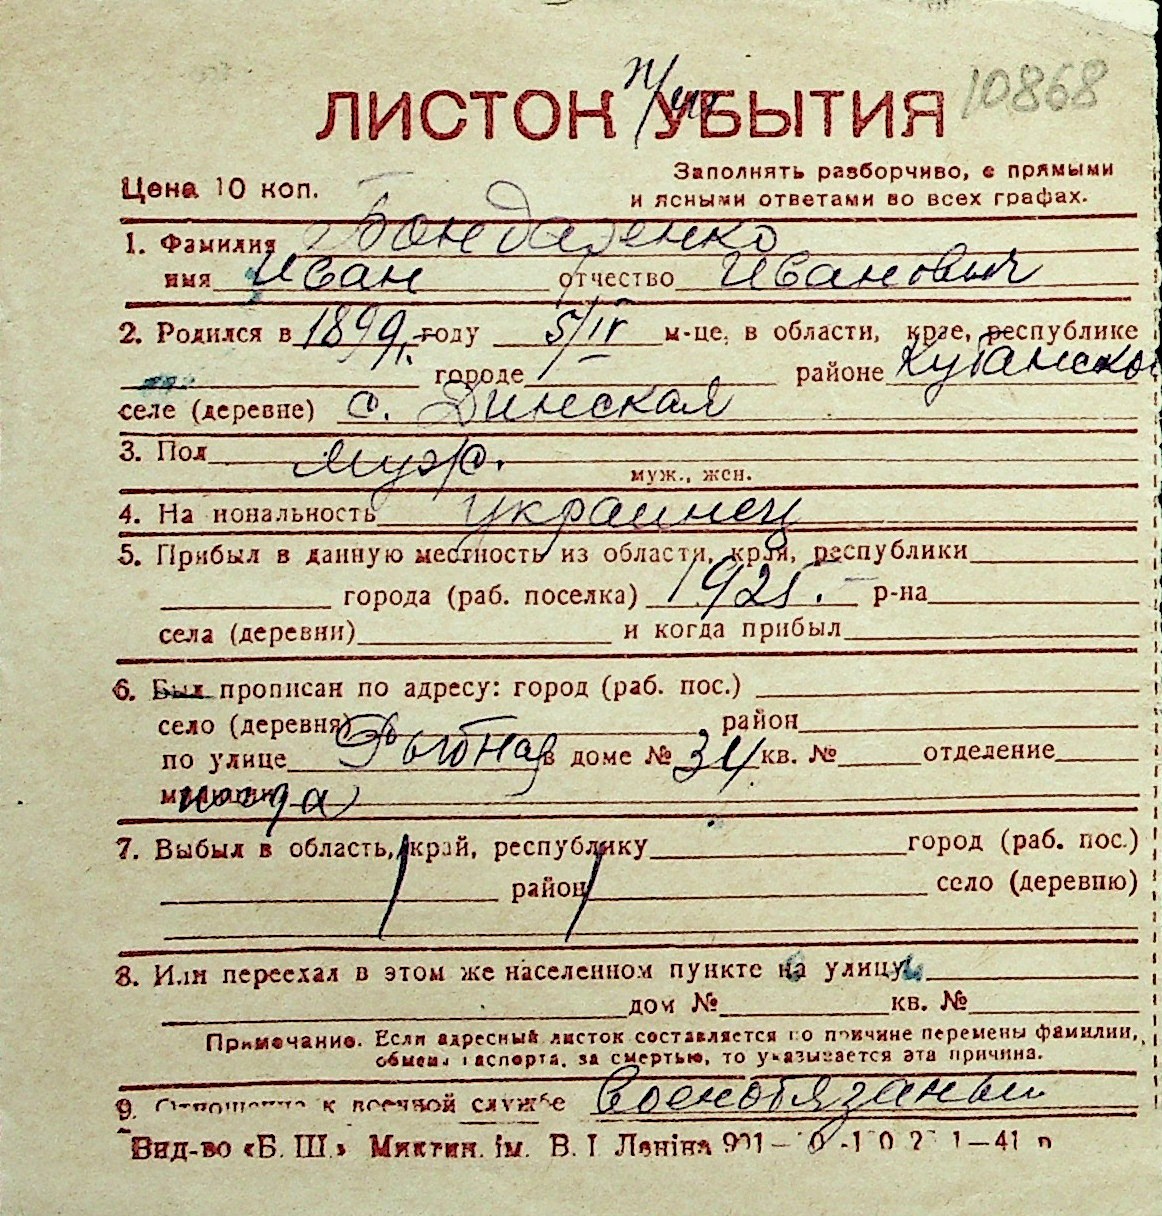 10868
ЛИСТОК УБЫТИЯ
Цена 10 коп.
Заполнять разборчиво, с прямыми
и ясными ответами во всех графах.
1. Фамилия Бондаренко
имя Иван отчество Иванович
2. Родился в 1899 г. году 5/IV м-це, в области, крае, республике
городе районе Кубанской
селе (деревне) с. Динская
3. Пол муж.
муж., жен.
4. На иональность украинец
5. Прибыл в данную местность из области, края, республики
города (раб. поселка) 1925. р-на
села (деревни) и когда прибыл
6. Был прописан по адресу: город (раб. пос.)
село (деревня) район
по улице Рыбная в доме № 34 кв. № отделение
милиции
7. Выбыл в область, край, республику город (раб. пос.)
район село (деревню)
8. Или переехал в этом же населенном пункте на улицу
дом № кв. №
Примечание. Если адресный листок составляется по причине перемены фамилии,
обмена паспорта, за смертью, то указывается эта причина.
9. Отношение к военной службе военобязаный
Вид-во «Б. Ш.» Миктин. ім. В. І Леніна